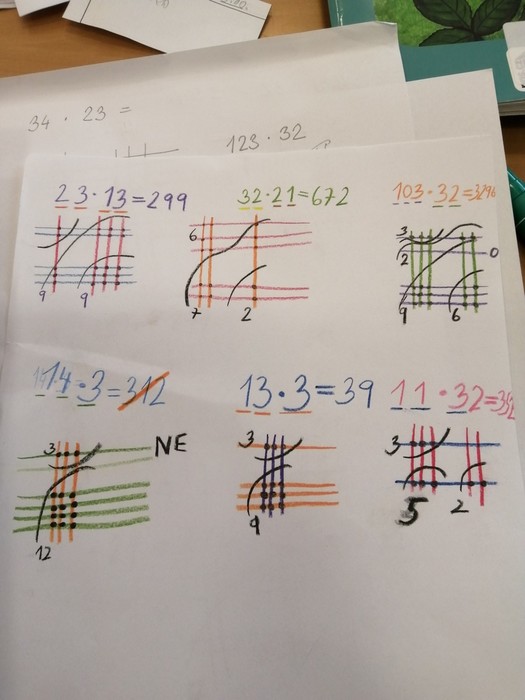 34 · 23 =
123 · 32
23·13=299
32·21=672
103·32=3296
6
3
2
0
9
9
7
2
9
6
14·3=312
13·3=39
11·32=352
3
NE
3
3
12
9
5
2